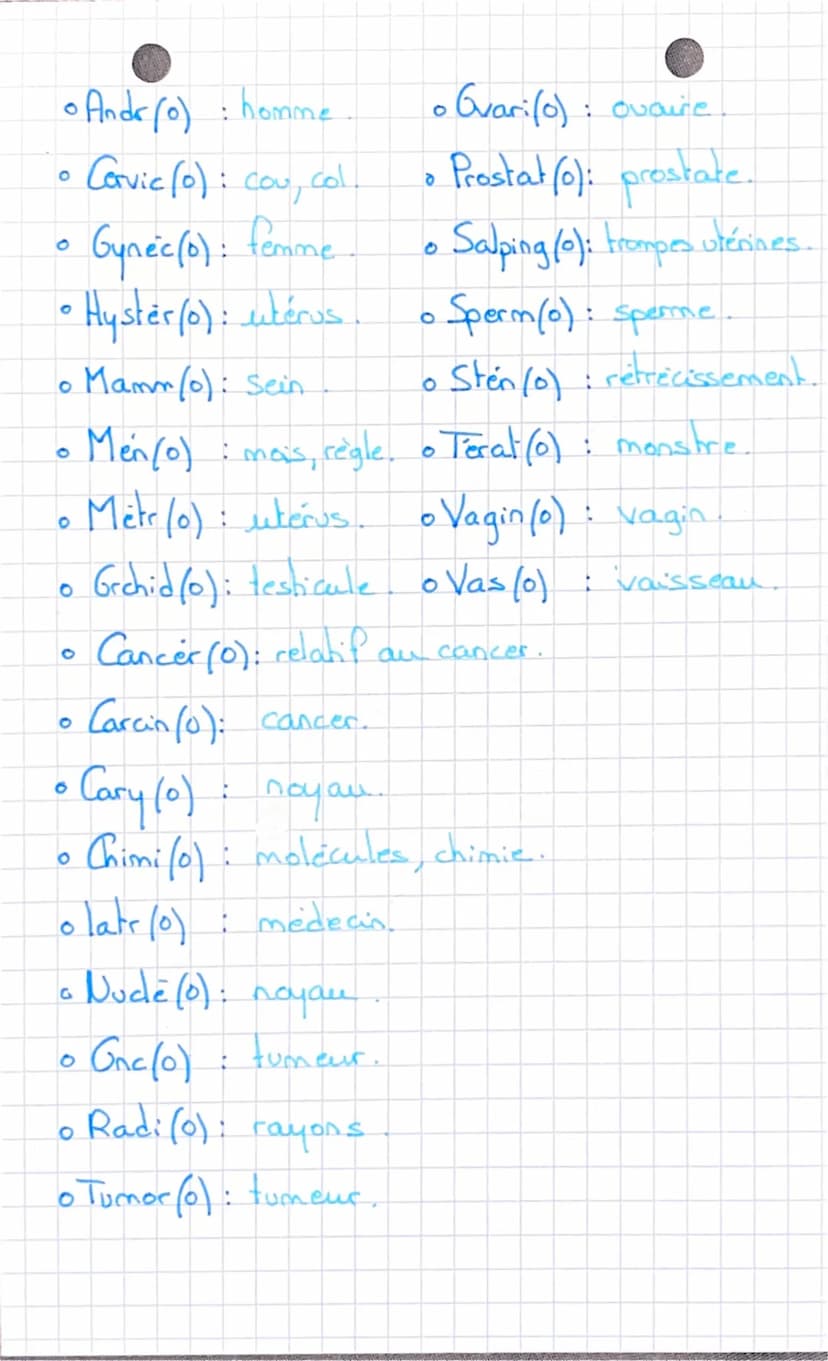 Andr(o) : homme.
Cervic(o) : cou, col.
Gynéc(o) : femme.
Hystér(o) : utérus.
Mamm(o) : sein.
Mén(o) : mois, règle.
Métr(o) : utérus.
Orchid(o) : testicule.
Ovari(o) : ovaire.
Prostat(o) : prostate.
Salping(o) : trompes utérines.
Sperm(o) : sperme.
Stén(o) : rétrécissement.
Térat(o) : monstre.
Vagin(o) : vagin.
Vas(o) : vaisseau.
Cancér(o) : relatif au cancer.
Carcin(o) : cancer.
Cary(o) : noyau.
Chimi(o) : molécules, chimie.
Iatr(o) : médecin.
Nuclé(o) : noyau.
Onc(o) : tumeur.
Radi(o) : rayons.
Tumor(o) : tumeur.